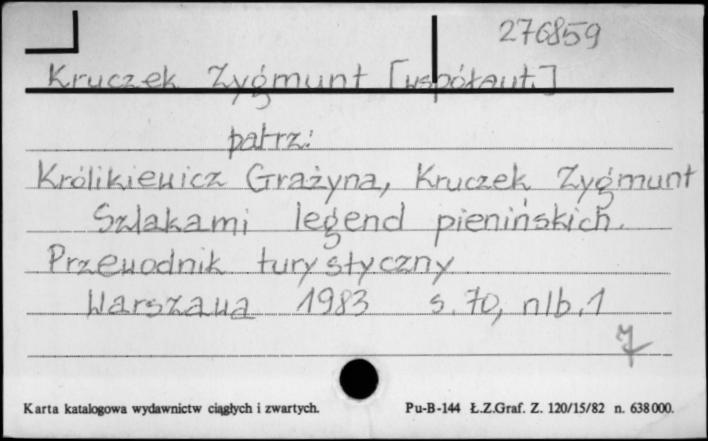 276859
Kruczek Zygmunt [współaut.]
patrz:
Królikiewicz Grażyna, Kruczek Zygmunt
Szlakami legend pienińskich.
Przewodnik turystyczny
Warszawa 1983 s. 70, nlb. 1
Karta katalogowa wydawnictw ciągłych i zwartych. Pu-B-144 Ł.Z.Graf. Z. 120/15/82 n. 638000.